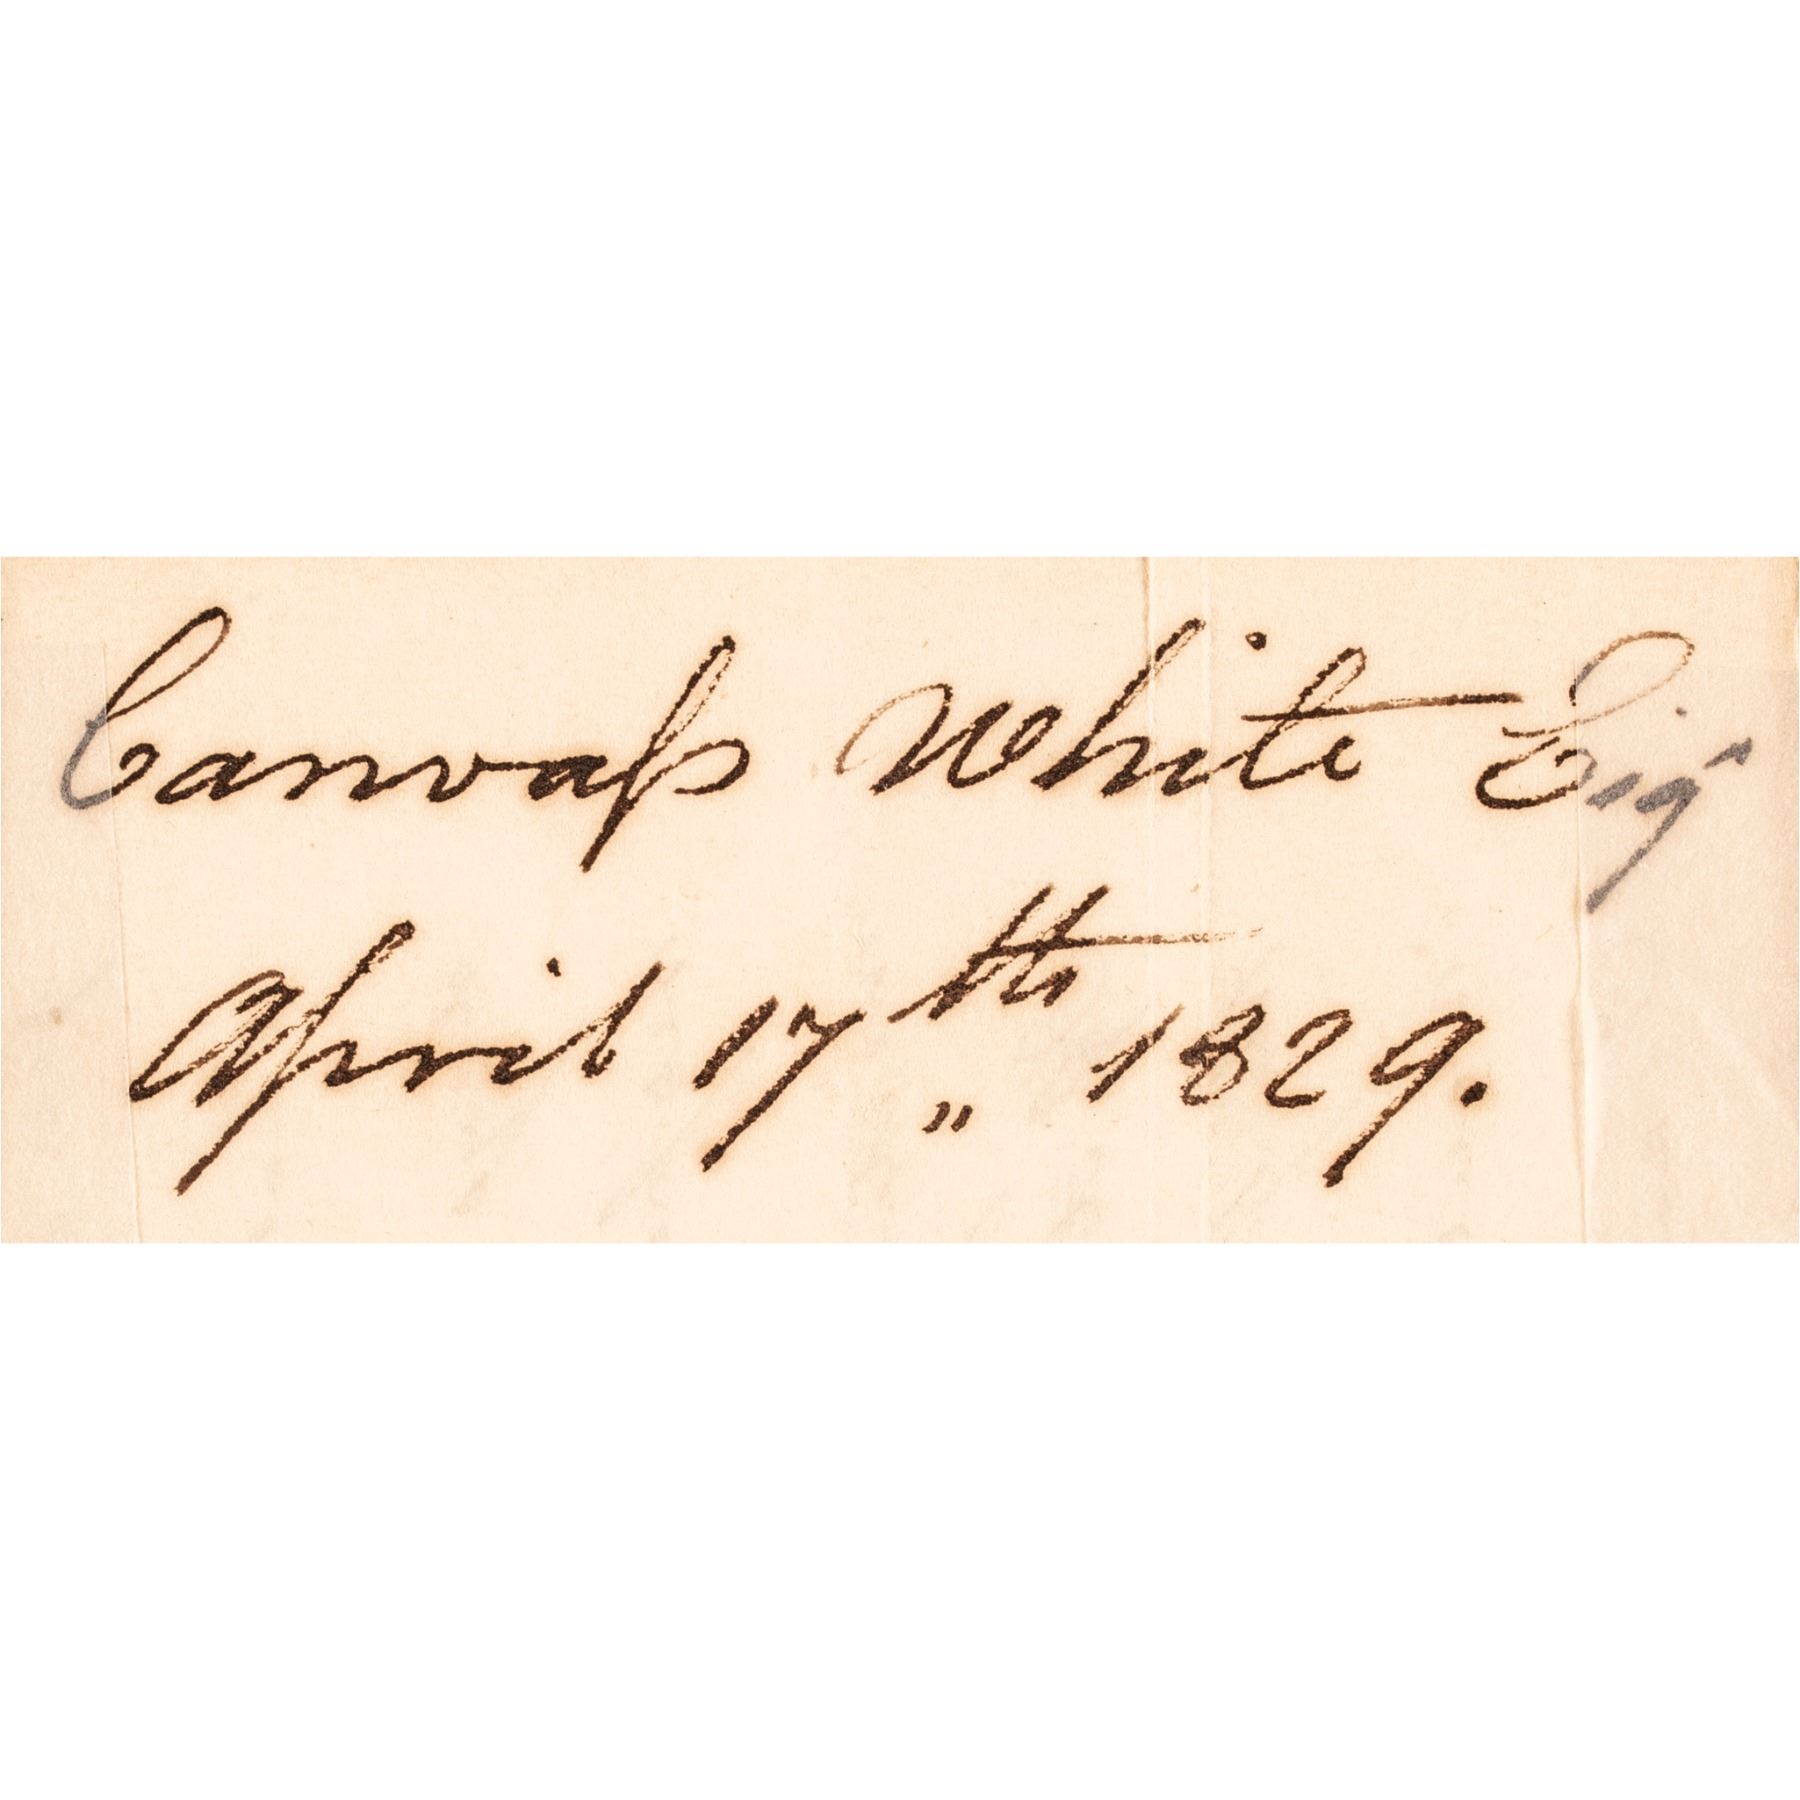 Canvass White Esqr
April 17th 1829.